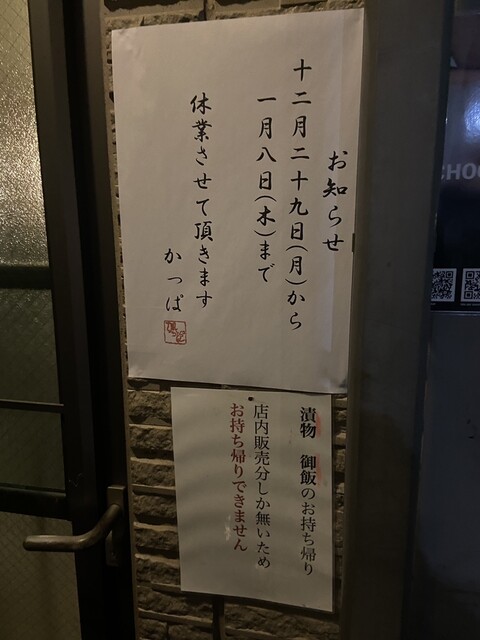 お知らせ
十二月二十九日(月)から
一月八日(木)まで
休業させて頂きます
かっぱ
漬物 御飯のお持ち帰り
店内販売分しか無いため
お持ち帰りできません